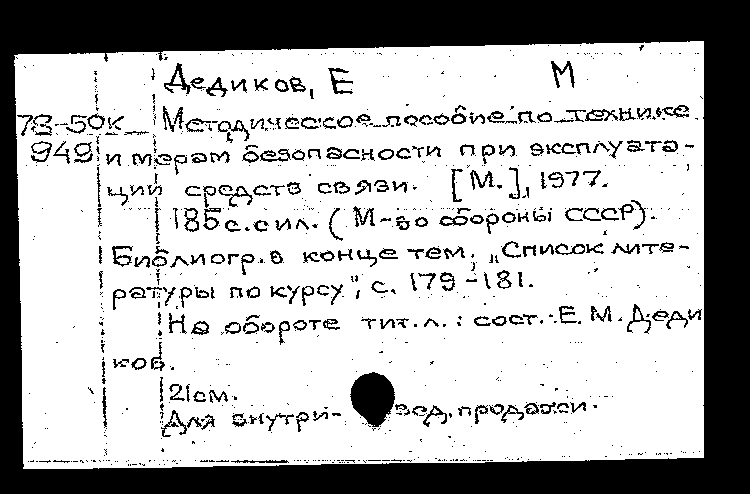 Дедиков, Е М
78-50к Методическое пособие по технике
949 и мерам безопасности при эксплуата-
ции средств связи. [М.], 1977.
185 с. с ил. (М-во обороны СССР).
Библиогр. в конце тем, „Список лите-
ратуры по курсу", с. 179-181.
На обороте тит. л. : сост. : Е. М. Деди
ков.
21 см.
Для внутри- вед. продажи.